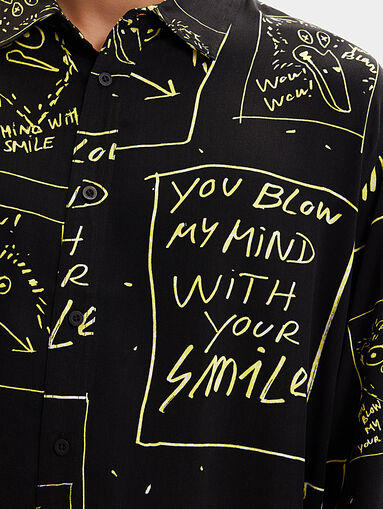 Wow!
Wow!
MIND WITH
SMILE
YOU BLOW
MY MIND
WITH
YOUR
SMILE
YOU
BLOW
MY